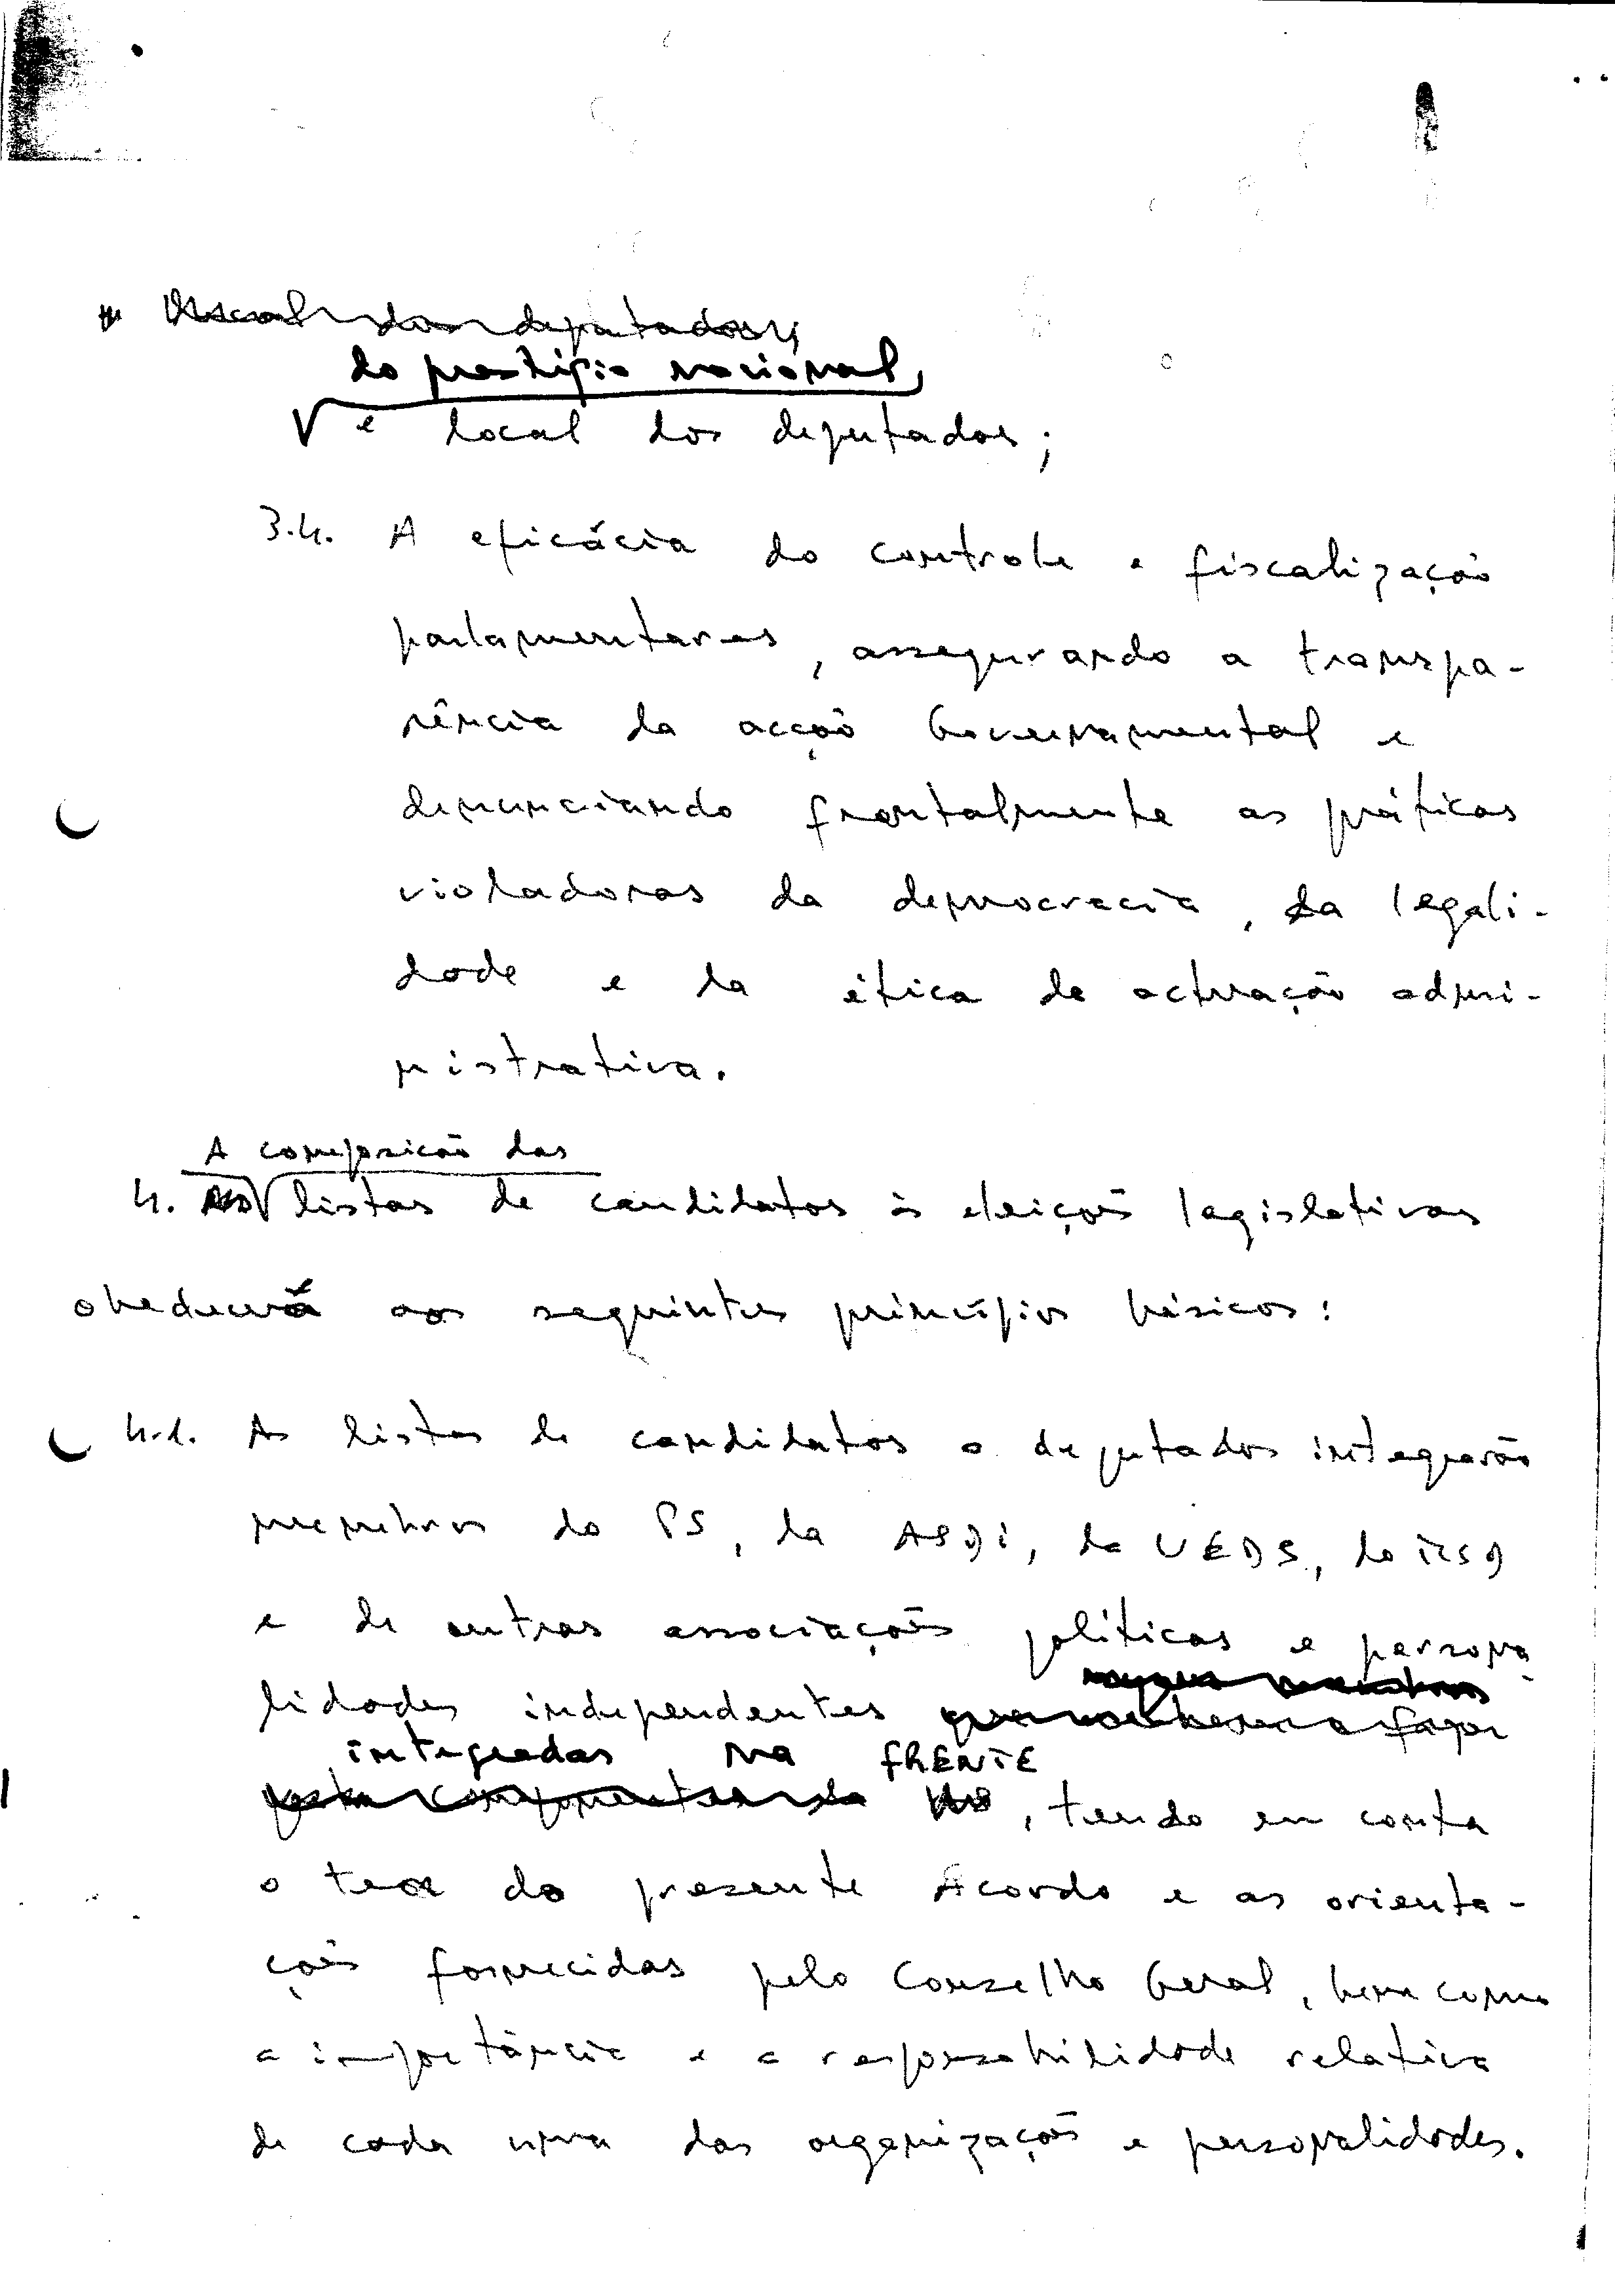 local dos deputados;
do prestígio nacional
e local dos deputados;
3.4. A eficácia do controle e fiscalização
parlamentares, assegurando a transpa-
rência da acção Governamental e
denunciando frontalmente as práticas
violadoras da democracia, da legali-
dade e da ética de actuação admi-
nistrativa.
A composição das
4. As listas de candidatos às eleições legislativas
obedecerá aos seguintes princípios básicos:
4.1. As listas de candidatos a deputados integrarão
membros do PS, da ASDI, da UEDS, do
e de outras associações políticas e persona
lidades independentes que a fazer
integradas na FRENTE
, tendo em conta
o teor do presente Acordo e as orienta-
ções fornecidas pelo Conselho Geral, bem como
a importância e a responsabilidade relativa
de cada uma das organizações e personalidades.